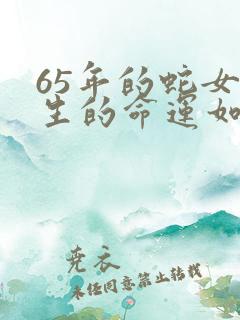 65年的蛇女
生的命运如
尧衣
未经同意禁止转载